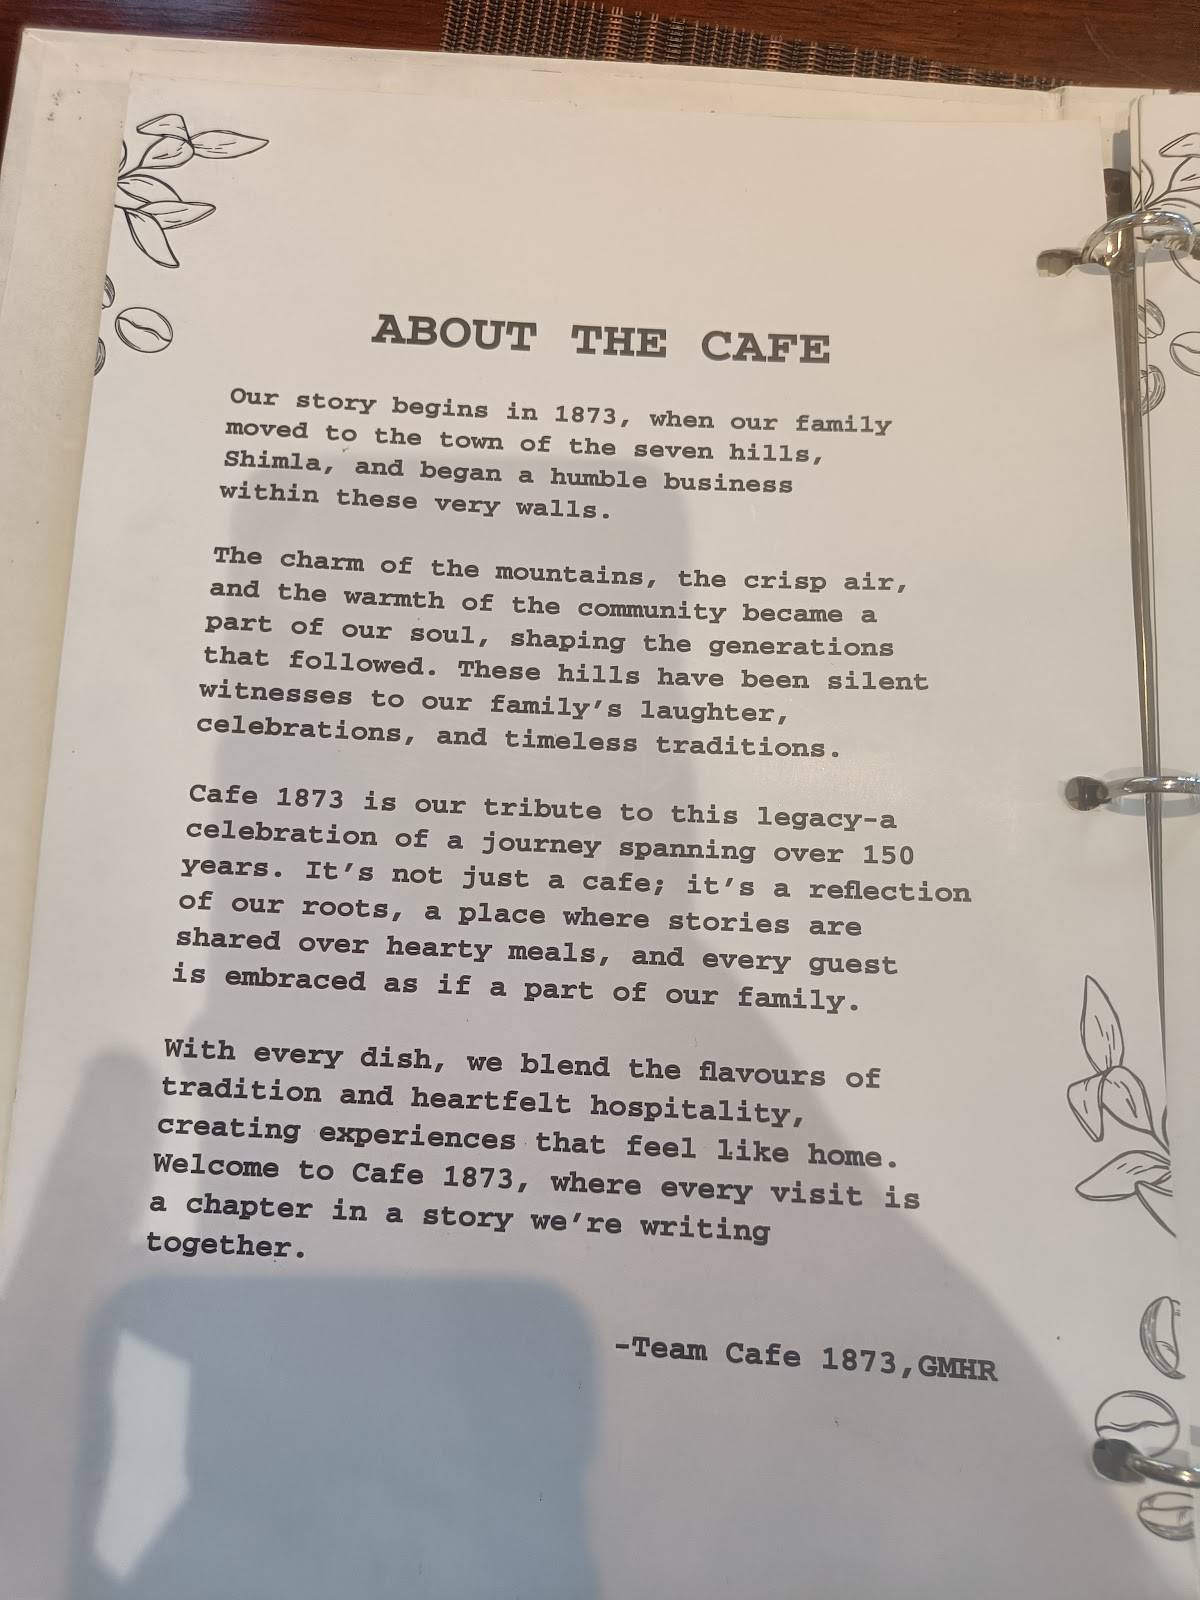 ABOUT THE CAFE
Our story begins in 1873, when our family
moved to the town of the seven hills,
Shimla, and began a humble business
within these very walls.
The charm of the mountains, the crisp air,
and the warmth of the community became a
part of our soul, shaping the generations
that followed. These hills have been silent
witnesses to our family's laughter,
celebrations, and timeless traditions.
Cafe 1873 is our tribute to this legacy-a
celebration of a journey spanning over 150
years. It's not just a cafe; it's a reflection
of our roots, a place where stories are
shared over hearty meals, and every guest
is embraced as if a part of our family.
With every dish, we blend the flavours of
tradition and heartfelt hospitality,
creating experiences that feel like home.
Welcome to Cafe 1873, where every visit is
a chapter in a story we're writing
together.
-Team Cafe 1873,GMHR